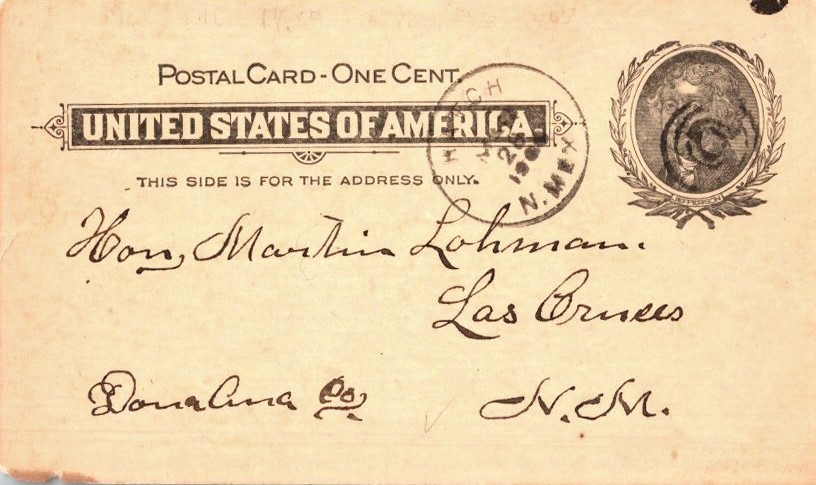 POSTAL CARD - ONE CENT.
UNITED STATES OF AMERICA.
THIS SIDE IS FOR THE ADDRESS ONLY.
HATCH
26
N. MEX
JEFFERSON
Hon, Martin Lohman.
Las Cruces
Dona Ana Co,
N. M.